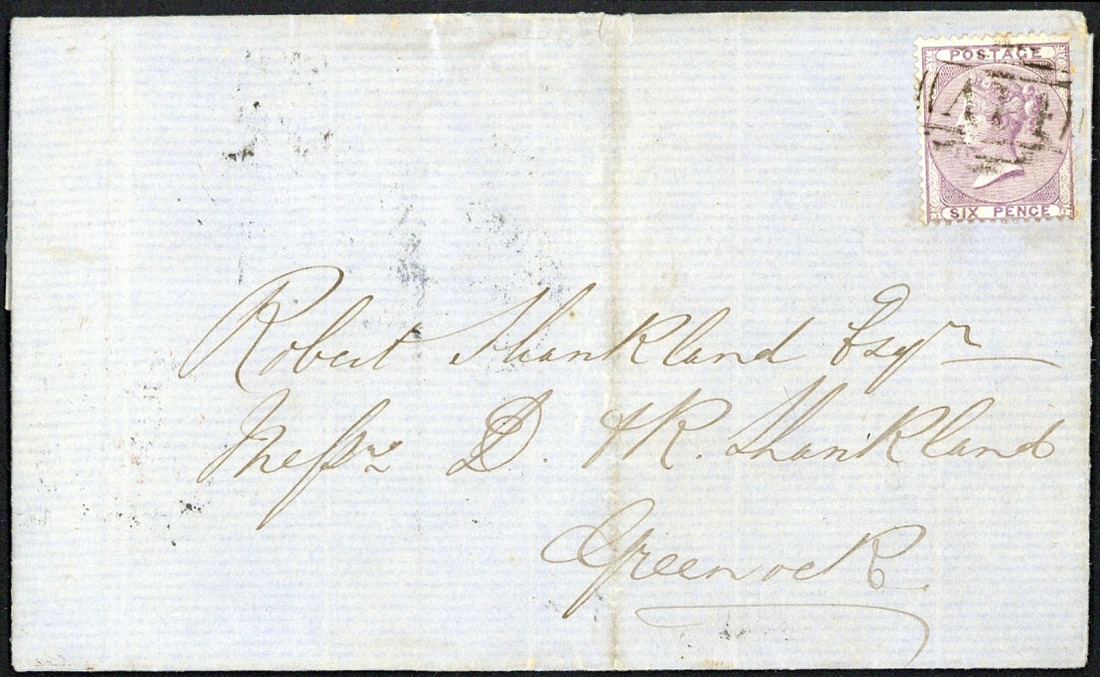 POSTAGE
SIX PENCE
Robert Shankland Esqr
Messrs D. & R. Shankland
Greenock